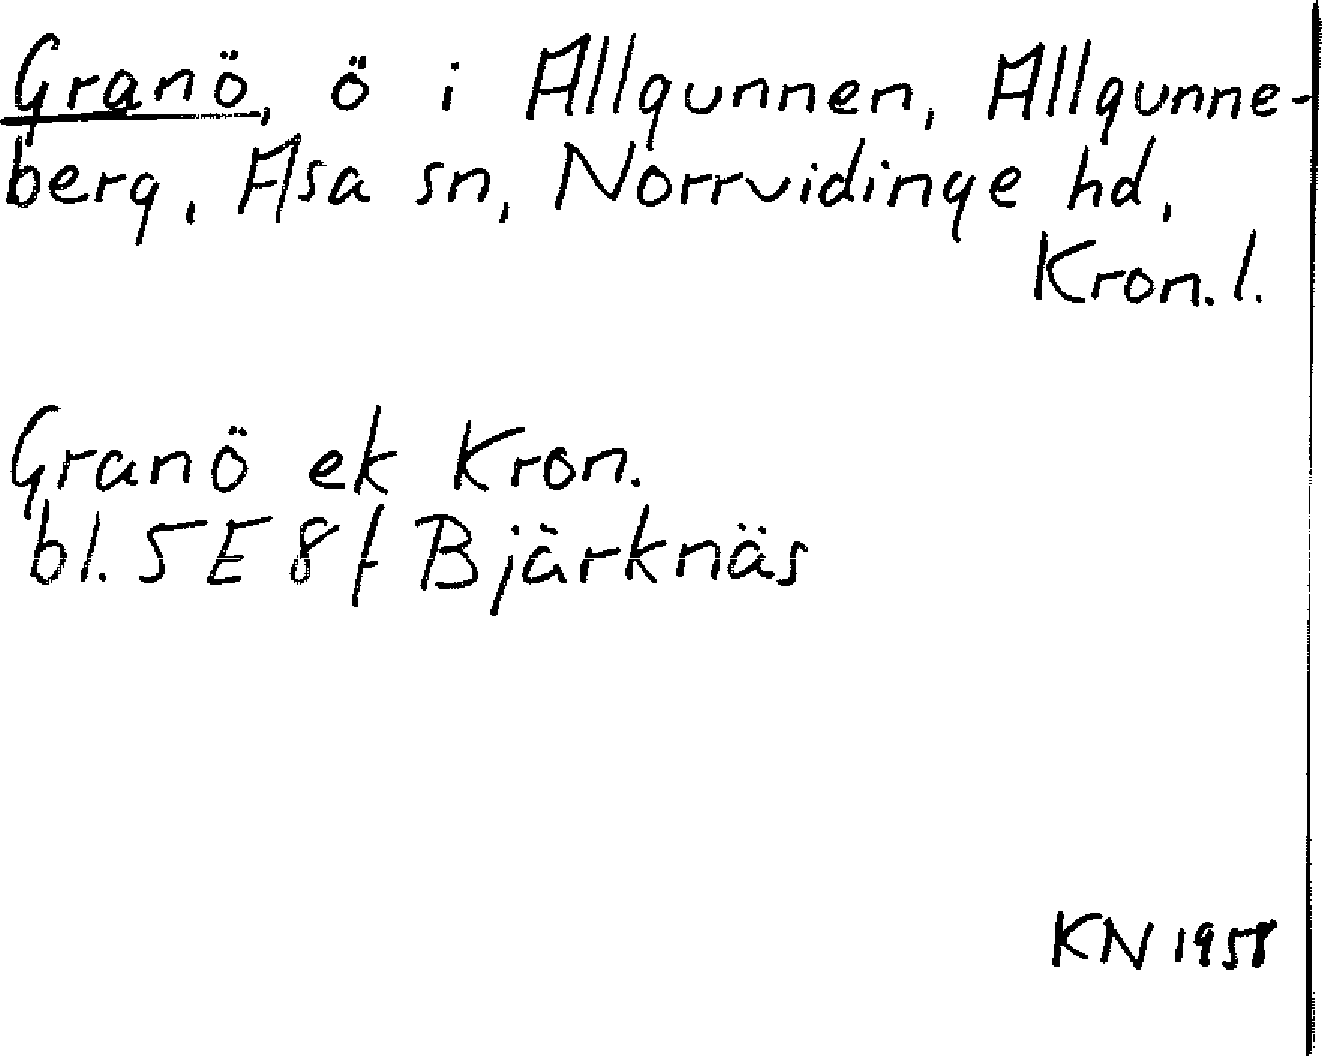 Granö, ö i Allgunnen, Allgunne-
berg, Asa sn, Norrvidinge hd,
Kron. l.
Granö ek Kron.
bl. 5E 8f Bjärknäs
KN 1958